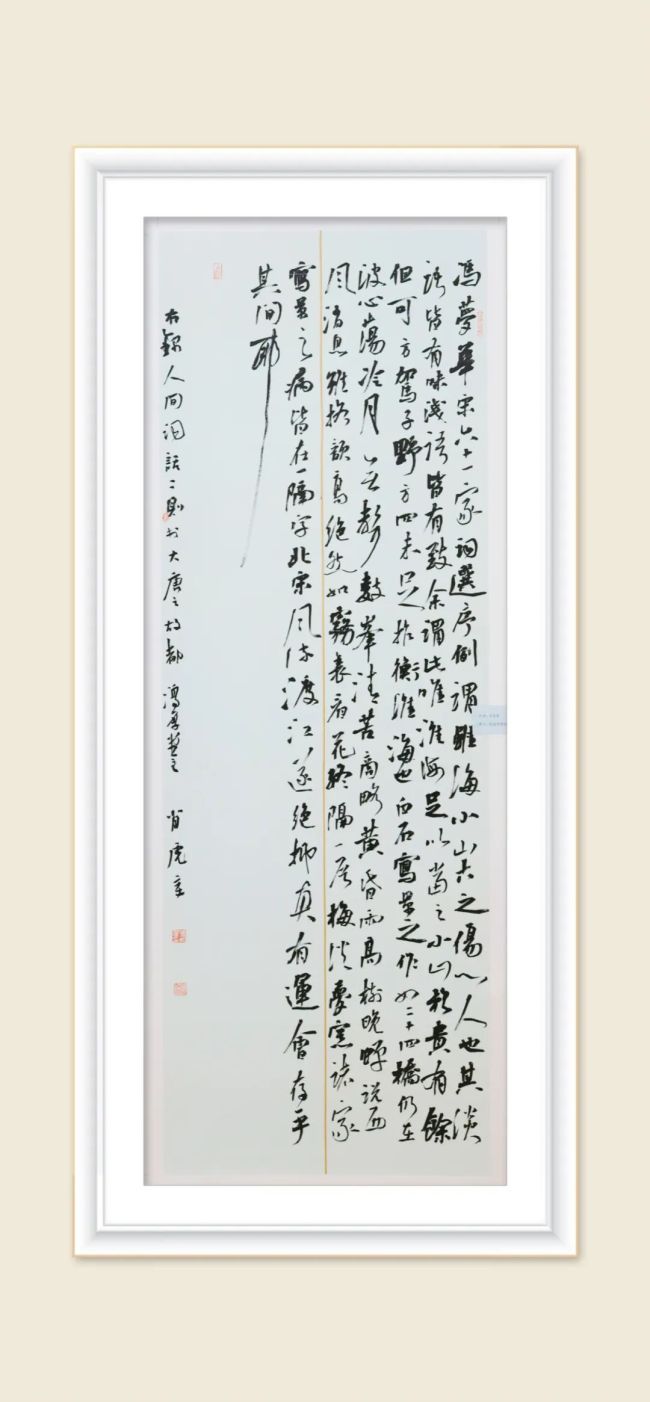 馮夢華宋六十一家詞選序例謂淮海小山古之傷心人也其淡
語皆有味淺語皆有致余謂此唯淮海足以當之小山矜貴有餘
但可方駕子野方回未足抗衡淮海也白石寫景之作如二十四橋仍在
波心蕩冷月無聲數峯清苦商略黃昏雨高樹晚蟬說西
風消息雖格韻高絕然如霧裏看花終隔一层梅溪夢窗諸家
寫景之病皆在一隔字北宋風流渡江遂絕抑真有運會存乎
其间耶
右錄人间詞話二則於大唐之故都